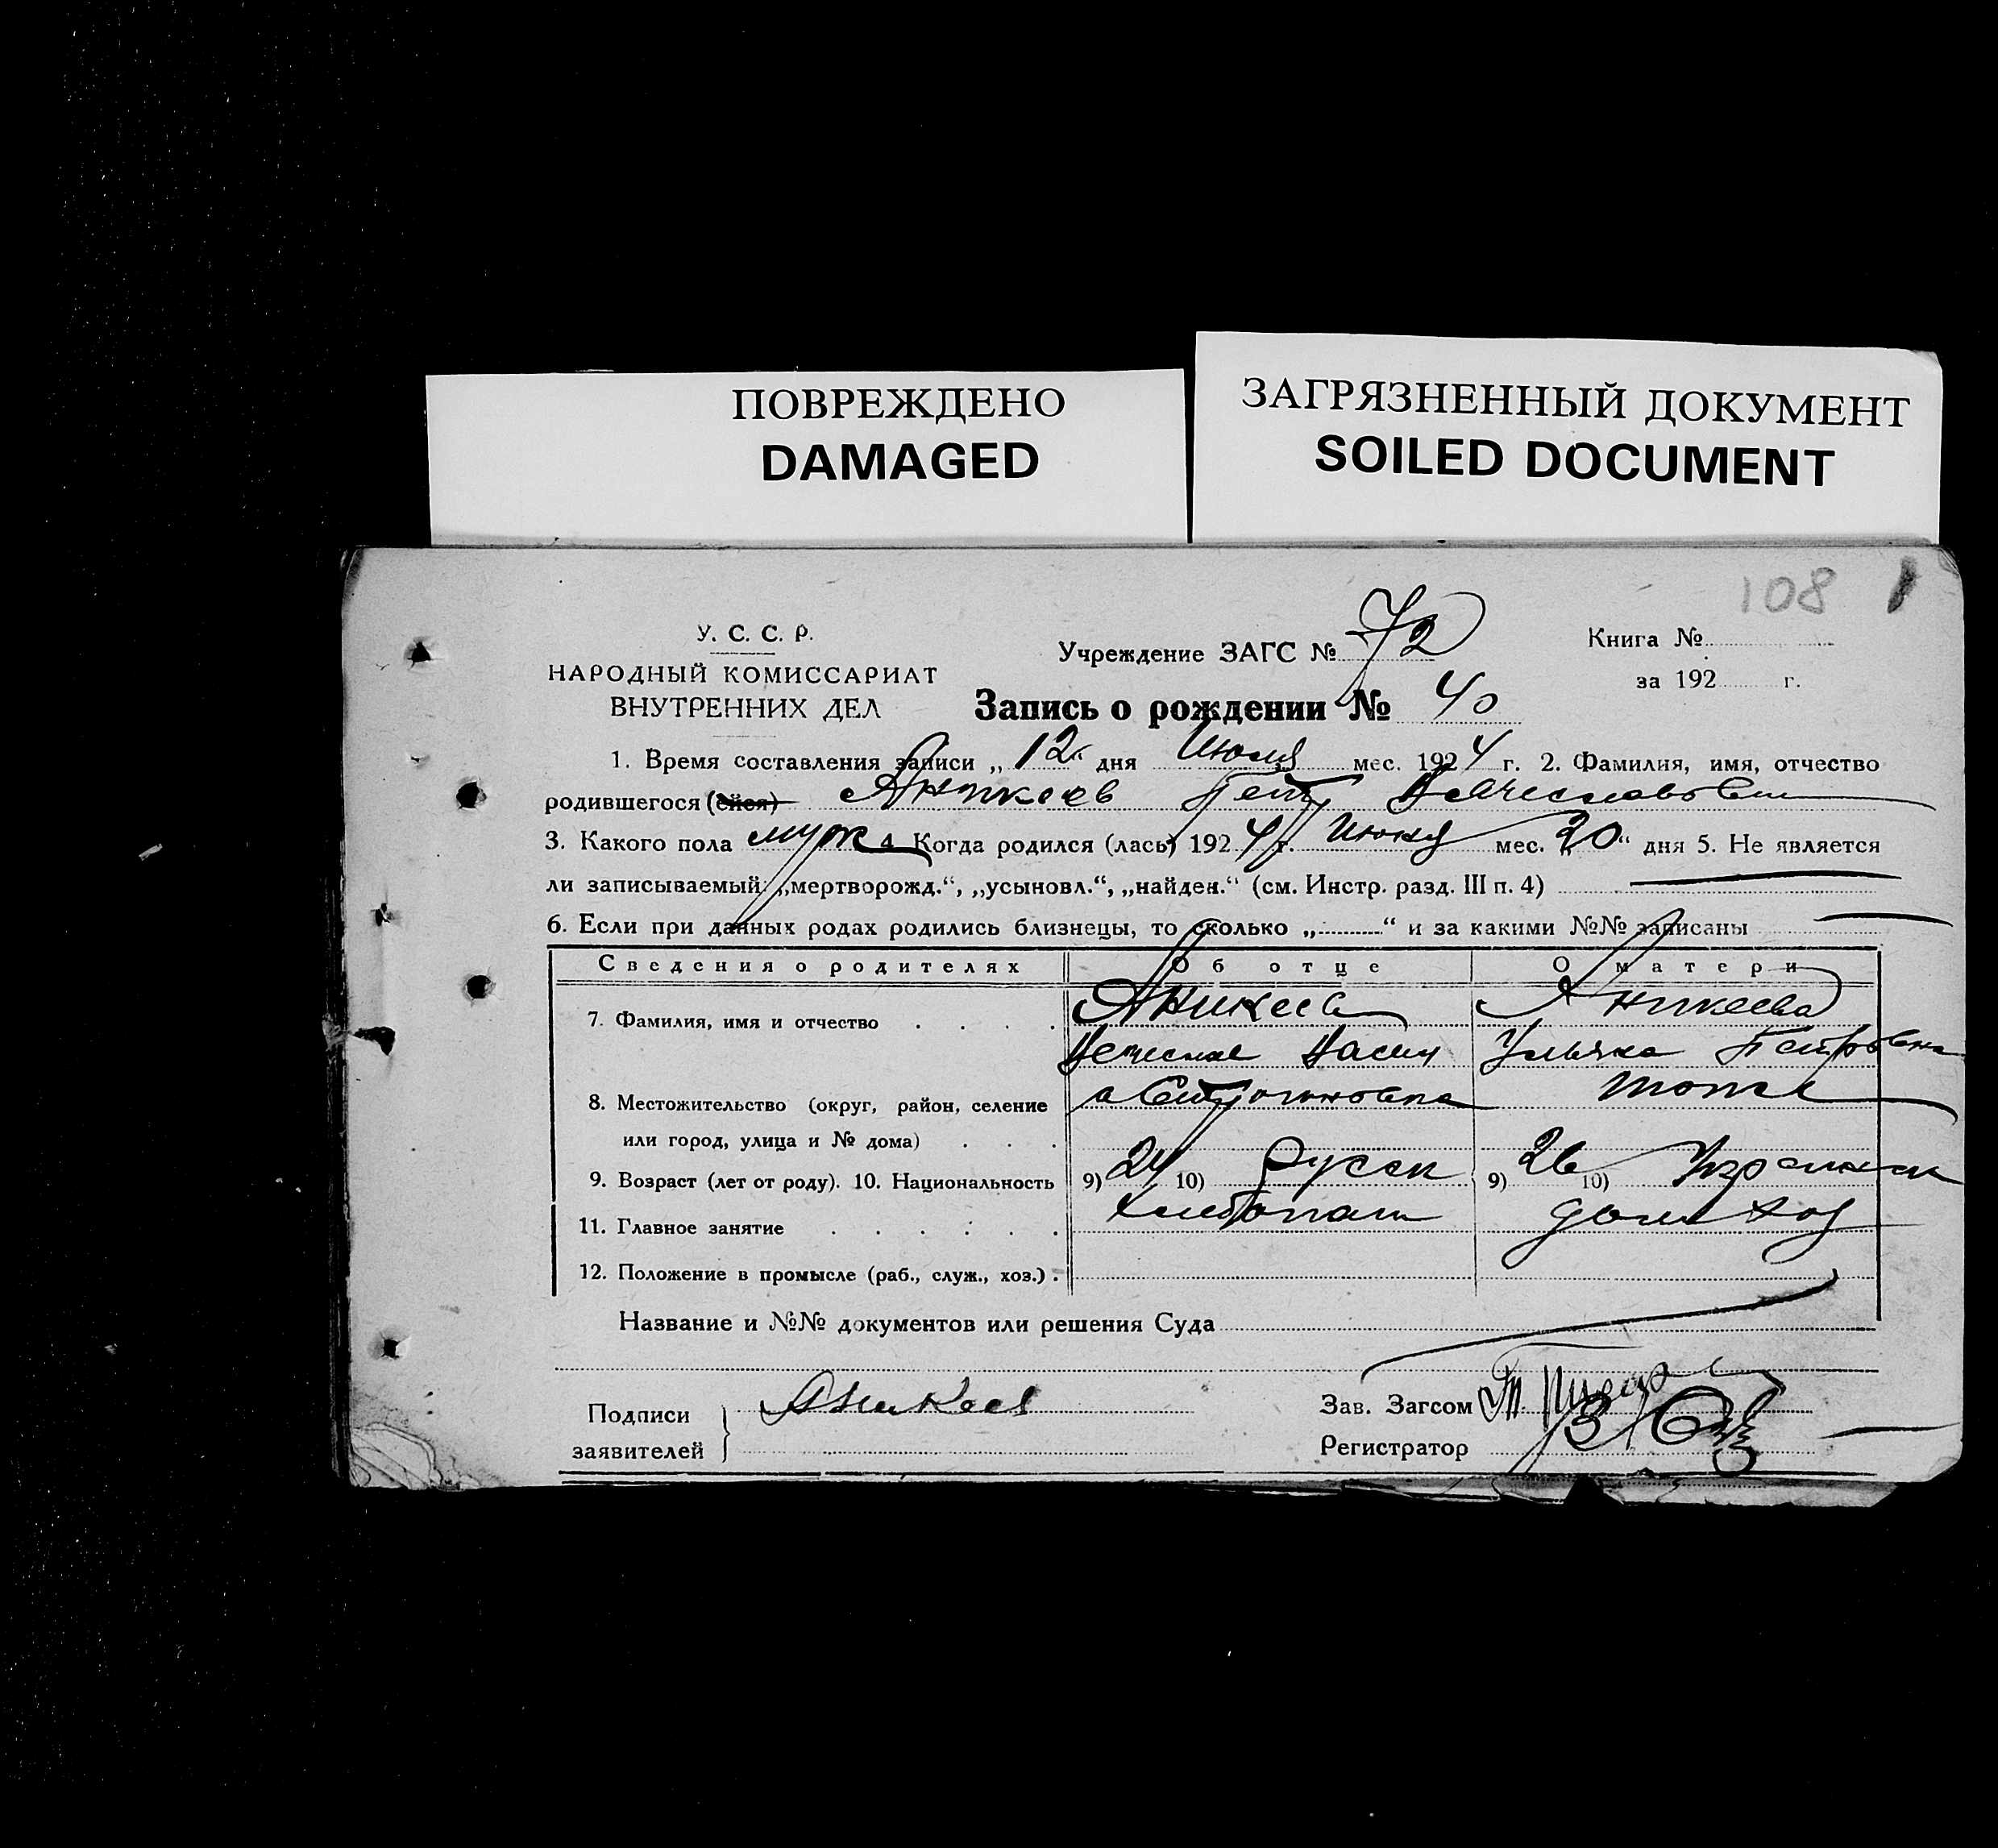 ПОВРЕЖДЕНО
DAMAGED
ЗАГРЯЗНЕННЫЙ ДОКУМЕНТ
SOILED DOCUMENT
108
У. С. С. Р.
НАРОДНЫЙ КОМИССАРИАТ
ВНУТРЕННИХ ДЕЛ
Учреждение ЗАГС № 72
Книга №
за 192 г.
Запись о рождении № 40
1. Время составления записи „12“ дня Июля мес. 1924 г. 2. Фамилия, имя, отчество
родившегося (ейся) Аникеев Петр Вячеславович
3. Какого пола муж 4. Когда родился (лась) 1924 г. Июня мес. „20“ дня 5. Не является
ли записываемый: „мертворожд.“, „усыновл.“, „найден.“ (см. Инстр. разд. III п. 4)
6. Если при данных родах родились близнецы, то сколько „..........“ и за какими №№ записаны
Сведения о родителях Об отце О матери
7. Фамилия, имя и отчество . . . . Аникеев Аникеева
Ульяна Петровна
8. Местожительство (округ, район, селение тоже
или город, улица и № дома) . . .
9. Возраст (лет от роду). 10. Национальность 9) 24 10) Русск 9) 26 10) Украинск
11. Главное занятие . . . . . . хлебопаш домхоз
12. Положение в промысле (раб., служ., хоз.) .
Название и №№ документов или решения Суда
Подписи заявителей } Аникеев
Зав. Загсом
Регистратор